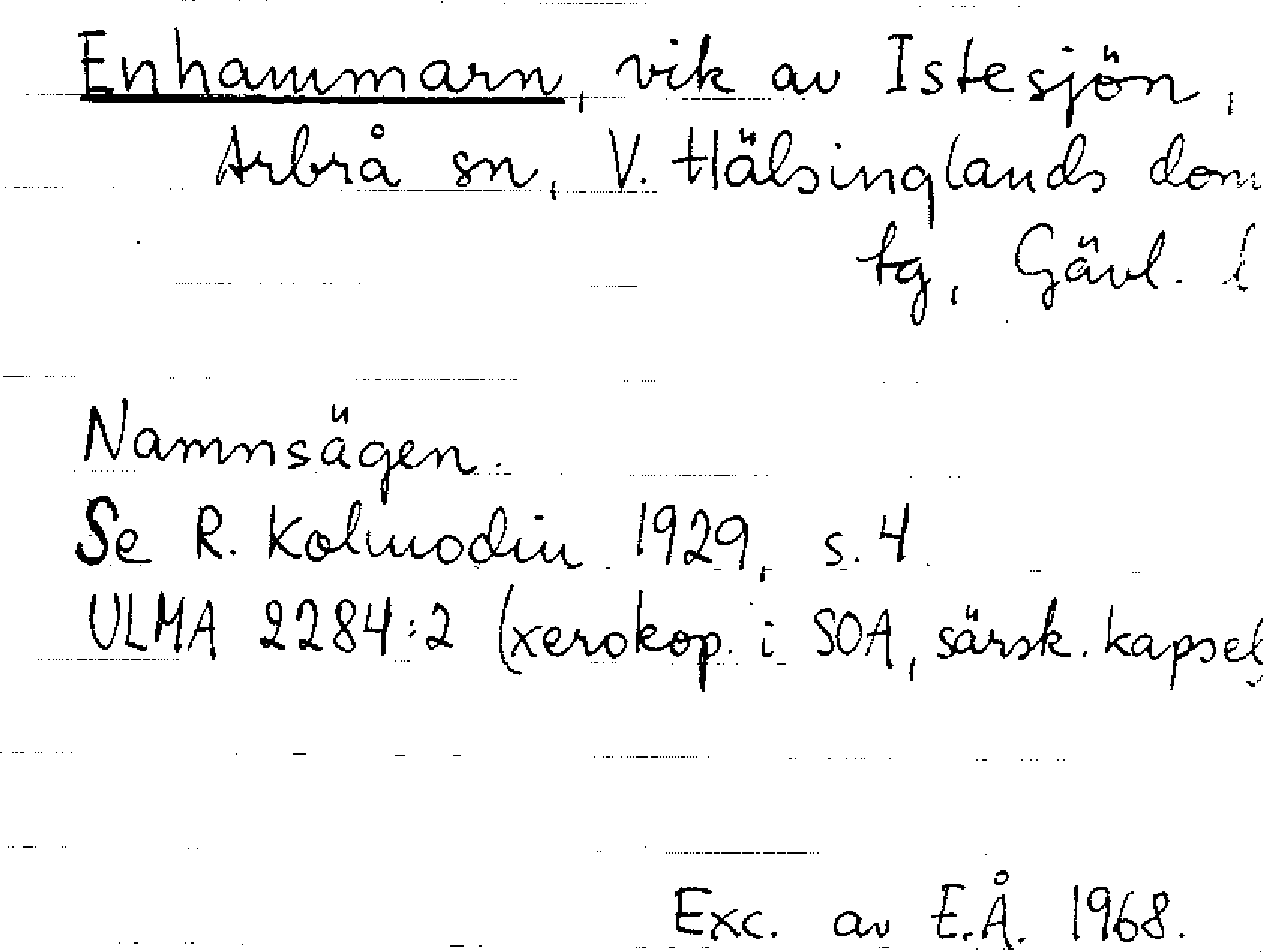 Enhammarn, vik av Istesjön,
Arbrå sn, V. Hälsinglands dom
tg, Gävl. l
Namnsägen.
Se R. Kolmodin 1929, s. 4.
ULMA 2284:2 (xerokop. i SOA, särsk. kapsel)
Exc. av E.Å. 1968.